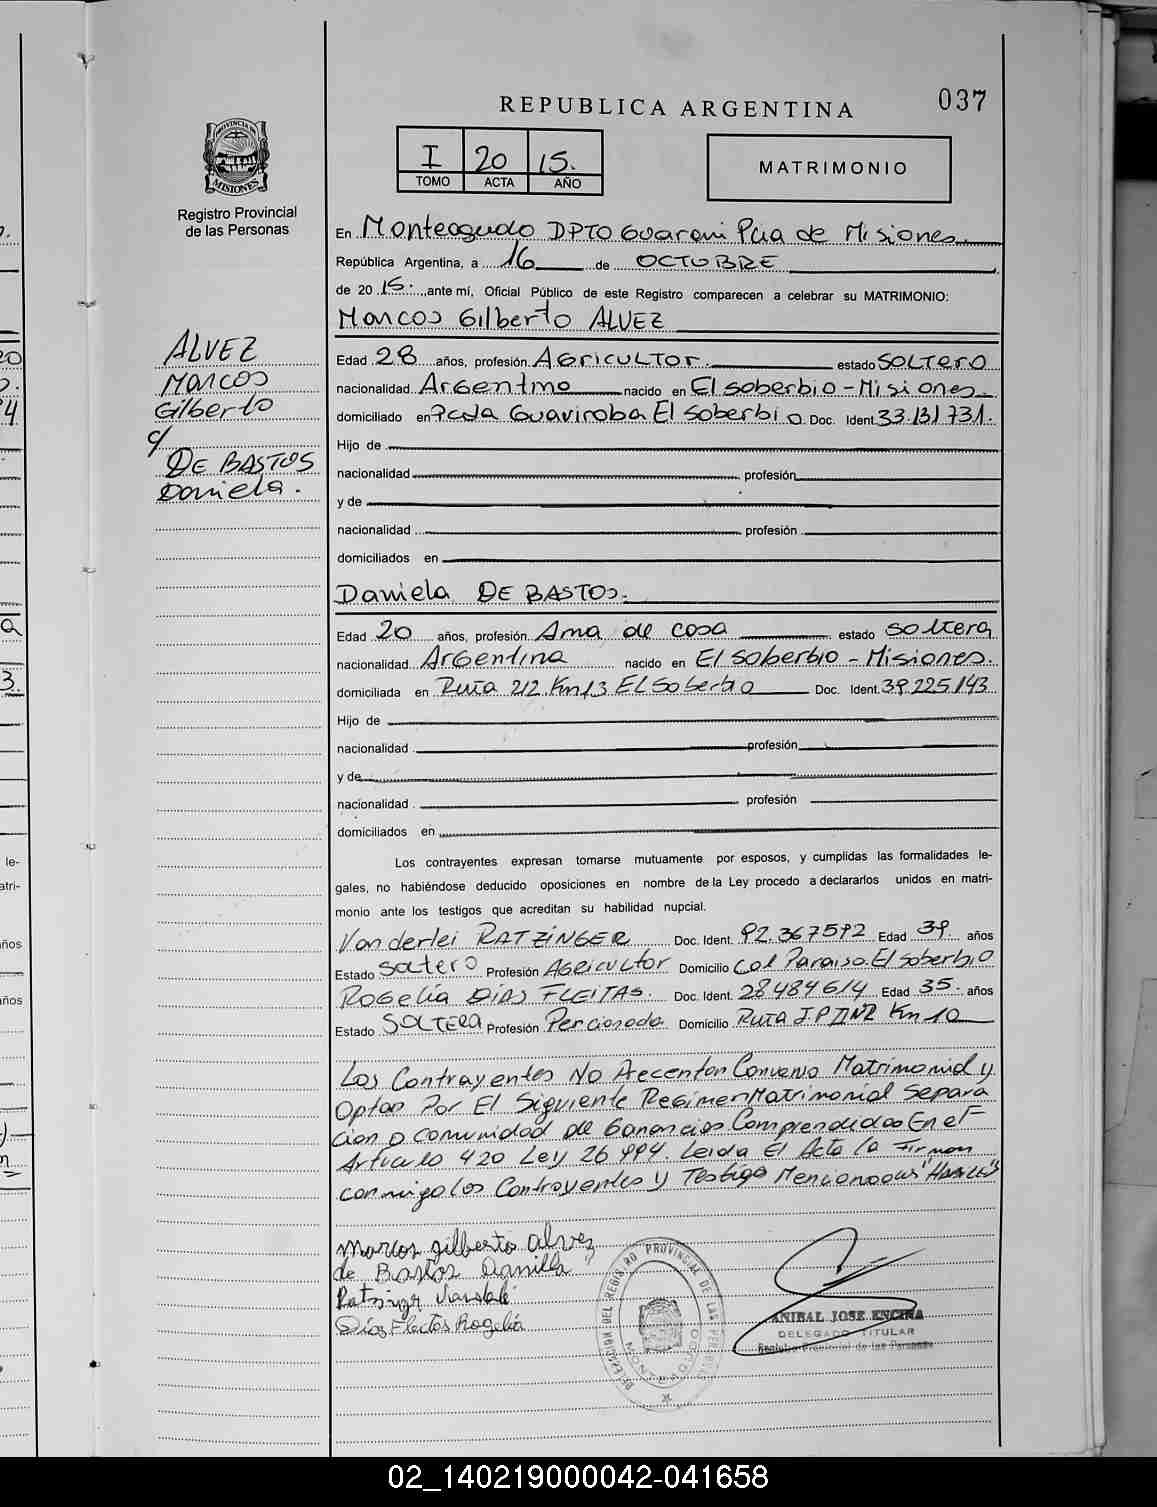 037
REPUBLICA ARGENTINA
I 20 15.
TOMO ACTA AÑO
MATRIMONIO
PROVINCIA DE MISIONES
Registro Provincial
de las Personas
En Monteagudo DPTO Guarani Pcia de Misiones.
República Argentina, a 16 de OCTUBRE
de 20 15. ,ante mí, Oficial Público de este Registro comparecen a celebrar su MATRIMONIO:
Marcos Gilberto ALVEZ
ALVEZ
Marcos
Gilberto
c/
DE BASTOS
Daniela.
Edad 28 años, profesión AGRICULTOR. estado SOLTERO
nacionalidad Argentino nacido en El soberbio - Misiones.
domiciliado en Pcada Guaviroba El Soberbio. Doc. Ident. 33.131.731.
Hijo de
nacionalidad profesión
y de
nacionalidad profesión
domiciliados en
Daniela DE BASTOS.
Edad 20 años, profesión Ama de casa estado soltera
nacionalidad Argentina nacido en El soberbio - Misiones.
domiciliada en Ruta 212 Km 13 El Soberbio Doc. Ident. 39.225.143
Hijo de
nacionalidad profesión
y de
nacionalidad profesión
domiciliados en
Los contrayentes expresan tomarse mutuamente por esposos, y cumplidas las formalidades le-
gales, no habiéndose deducido oposiciones en nombre de la Ley procedo a declararlos unidos en matri-
monio ante los testigos que acreditan su habilidad nupcial.
Vanderlei RATZINGER Doc. Ident. 92.367592 Edad 39 años
Estado soltero Profesión Agricultor Domicilio Col Paraiso. El soberbio
Rogelia DIAS FLEITAS. Doc. Ident. 28484614 Edad 35. años
Estado SOLTERA Profesión Pensionada Domicilio Ruta Km 10
Los Contrayentes No Precentan Convenio Matrimonial y
Optan Por El Siguiente Regimen Matrimonial Separa
cion o comunidad de Ganancias Comprendidas En el
Articulo 420 Ley 26 994. Leida El Acta la Firman
conmigo los Contrayentes y Testigo Mencionados
Marcos gilberto alvez
de Bastos Daniela
Ratzinger
Dias Fleitas Rogelia
DELEGACION DEL REGISTRO PROVINCIAL DE LAS PERSONAS
MONTEAGUDO
ANIBAL JOSE ENCINA
DELEGADO TITULAR
Registro Provincial de las Personas
02_140219000042-041658